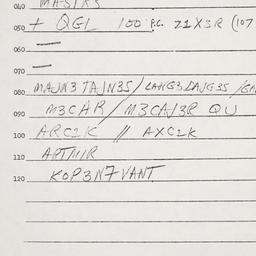 040 MASTRS
050 + QGL 100 P.C. Z1X3R (107
060 —
070 —
080 MAJN3 TAJN3S / LANG3 LANG3S / GR
090 M3CAR / M3CAJ3R QU
100 ARC2K // AXC2K
110 ARTMIR
120 KOP3N7VANT